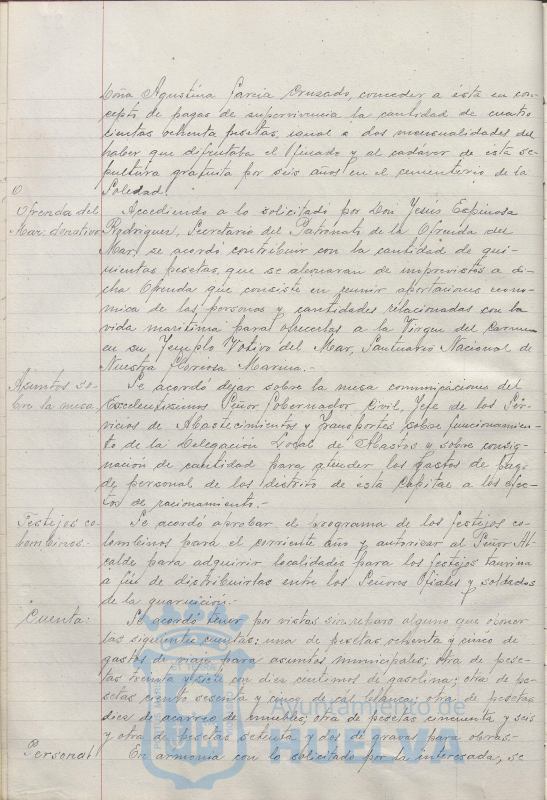 Doña Agustina Garcia Cruzado, conceder a esta en con-
cepto de pagas de supervivencia la cantidad de cuatro
cientas ochenta pesetas, igual a dos mensualidades del
haber que disfrutaba el finado y al cadáver de éste se-
pultura gratuita por seis años en el cementerio de la
Soledad.
Ofrenda del Accediendo a lo solicitado por Don Jesús Espinosa
Mar: donativo Rodriguez, Secretario del Patronato de la Ofrenda del
Mar se acordó contribuir con la cantidad de qui-
nientas pesetas, que se abonaran de imprevistos a di-
cha Ofrenda que consiste en reunir aportaciones econo-
mica de las personas y cantidades relacionadas con la
vida maritima para ofrecerlas a la Virgen del Carmen
en su Templo Votivo del Mar, Santuario Nacional de
Nuestra Gloriosa Marina.-
Asuntos so- Se acordó dejar sobre la mesa comunicaciones del
bre la mesa. Excelentísimos Señor Gobernador Civil, Jefe de los Ser-
vicios de Abastecimientos y Transportes sobre funcionamien-
to de la Delegación Local de Abastos y sobre consig-
nación de cantidad para atender los gastos de pago
de personal de los distrito de esta Capital a los efec-
tos de racionamiento.-
Festejos co- Se acordó aprobar el programa de los festejos co-
lombinos.- lombinos para el corriente año y autorizar al Señor Al-
calde para adquirir localidades para los festejos taurina
a fin de distribuirlas entre los Señores Ofiales y soldados
de la guarnición.-
Cuenta: Se acordó tener por vistas sin reparo alguno que oponer
las siguientes cuentas: una de pesetas ochenta y cinco de
gastos de viaje para asuntos municipales; otra de pese-
tas treinta y siete con diez centimos de gasolina; otra de pe-
setas ciento sesenta y cinco de cal blanca; otra de pesetas
diez de acarreo de muebles; otra de pesetas cincuenta y seis
y otra de pesetas setenta y dos de gravas para obras.-
Personal En armonia con lo solicitado por la interesada, se
Ayuntamiento de
HUELVA